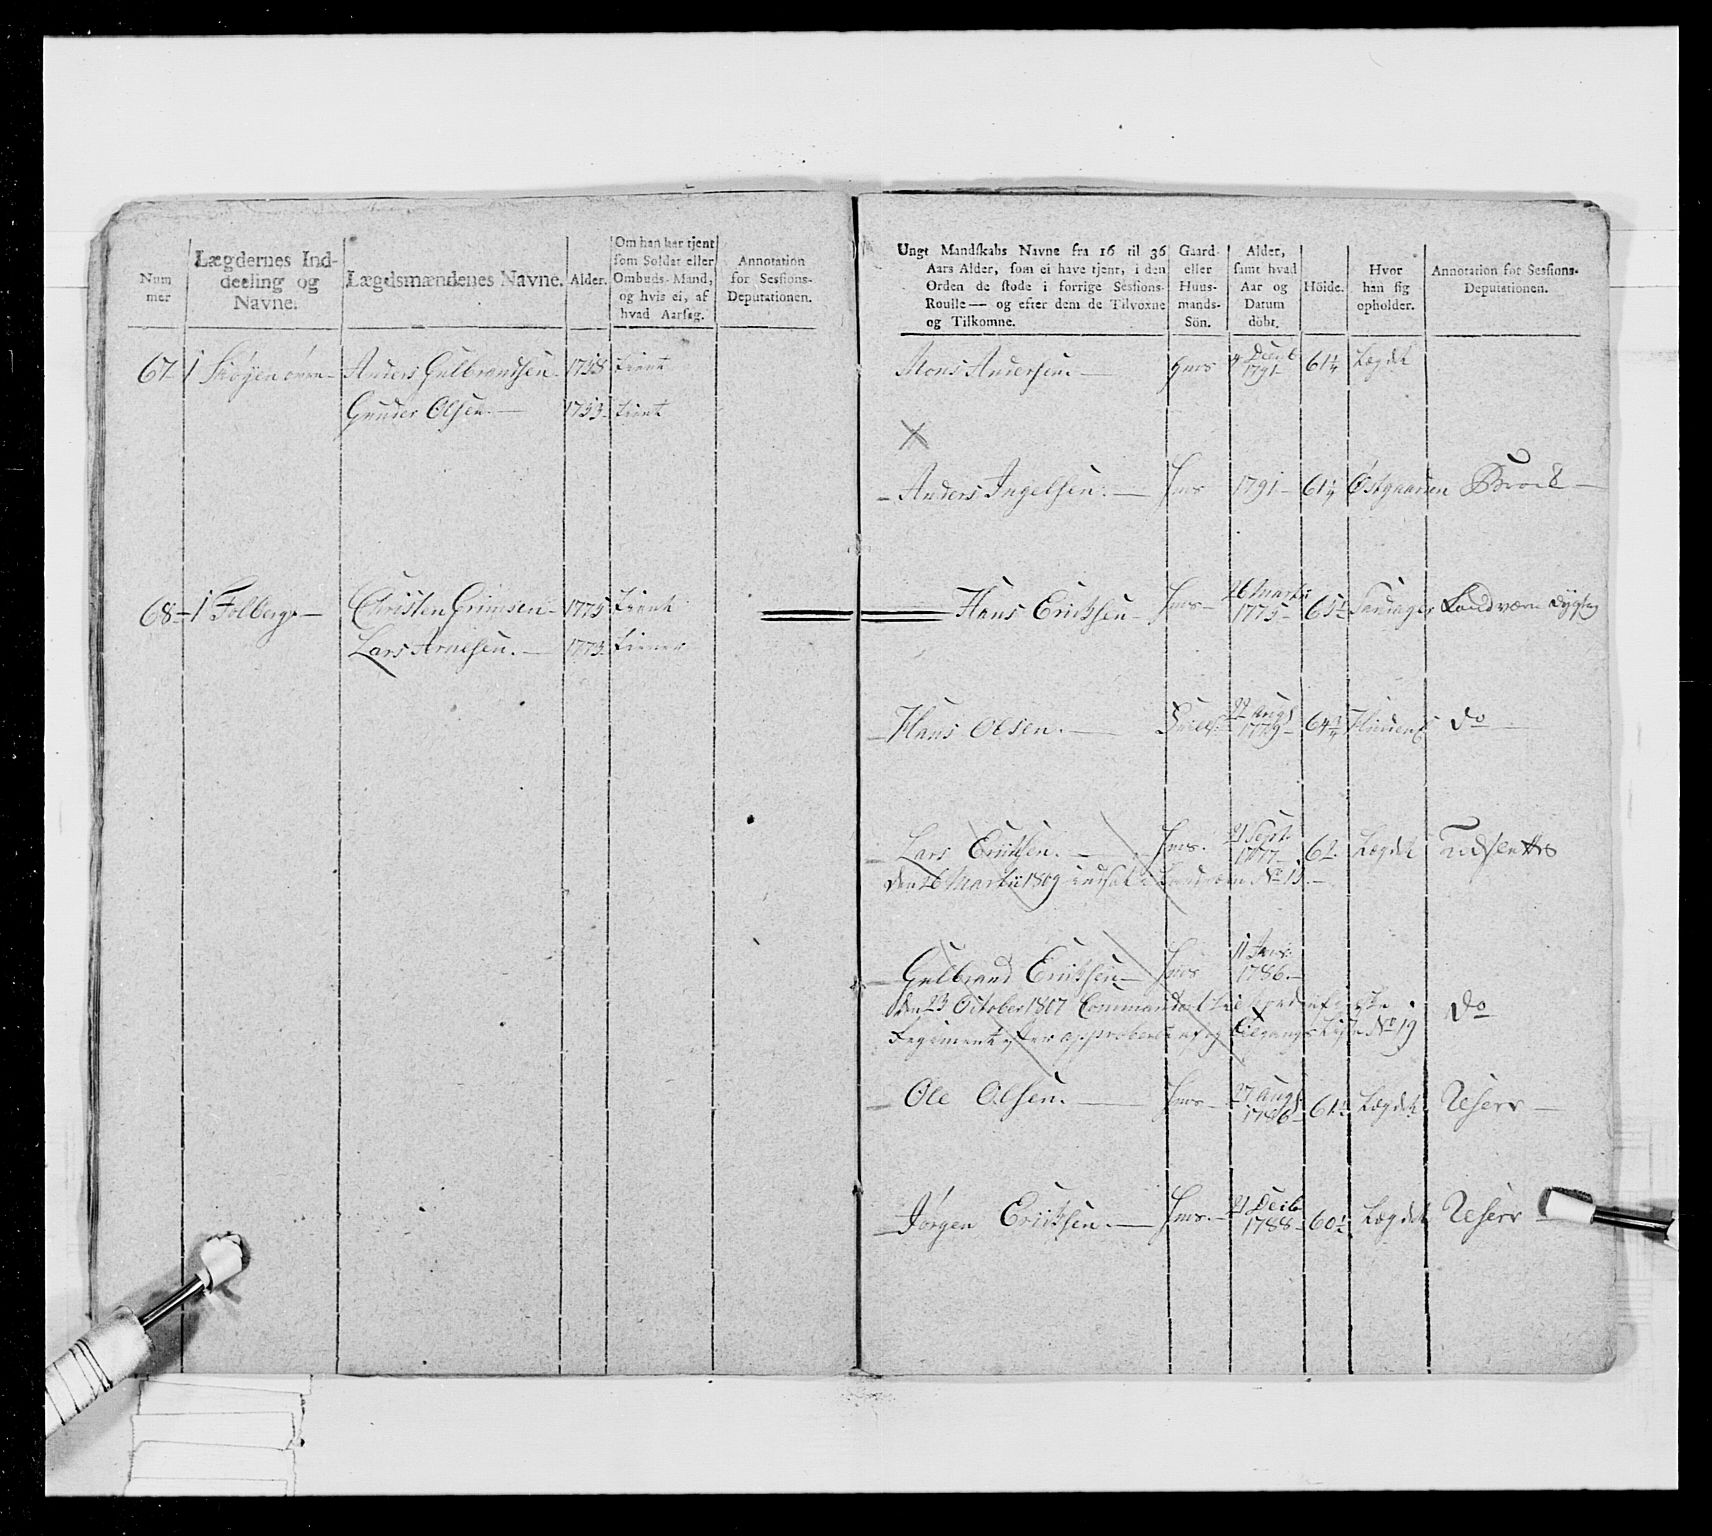 Num
mer
Lægdernes Ind-
deeling og
Navne.
Lægdsmændenes Navne.
Alder.
Om han har tjent
som Soldat eller
Ombuds-Mand,
og hvis ei, af
hvad Aarsag.
Annotation
for Sessions-
Deputationen.
67 1 Anders Gulbrandsen 1758 tient
Gunder Olsen. 1753 tient
68 1 Folberg Christen Grimsen 1775 tient
Lars Arnesen. 1773 tiener
Ungt Mandskabs Navne fra 16 til 36
Aars Alder, som ei have tjent, i den
Orden de stode i forrige Sessions-
Roulle — og efter dem de Tilvoxne
og Tilkomne.
Gaard-
eller
Huus-
mands-
Sön.
Alder,
samt hvad
Aar og
Datum
döbt.
Höide.
Hvor
han sig
opholder.
Annotation for Sessions-
Deputationen.
Mons Andersen 4 Decb 1791 61¼ Lægdet
Anders Ingelsen. 1791 61¼ Østgaarden
Hans Ericksen 26 Marts 1775 65 Landværn dygtig
Hans Olsen. 22 Aug 1779 64¾ do
Lars Ericksen. 21 Sept. 1777 62 Lægdet Udslettes
den 26 Martii 1809 Landværn No 15.
Gulbrand Ericksen 11 Jan. 1786
den 23 October 1807 do
Regiment No 19
Ole Olsen. 27 Aug 1786 61½ Lægdet Reserv
Jørgen Ericksen. 21 Decb 1788 60½ Lægdet Reserv